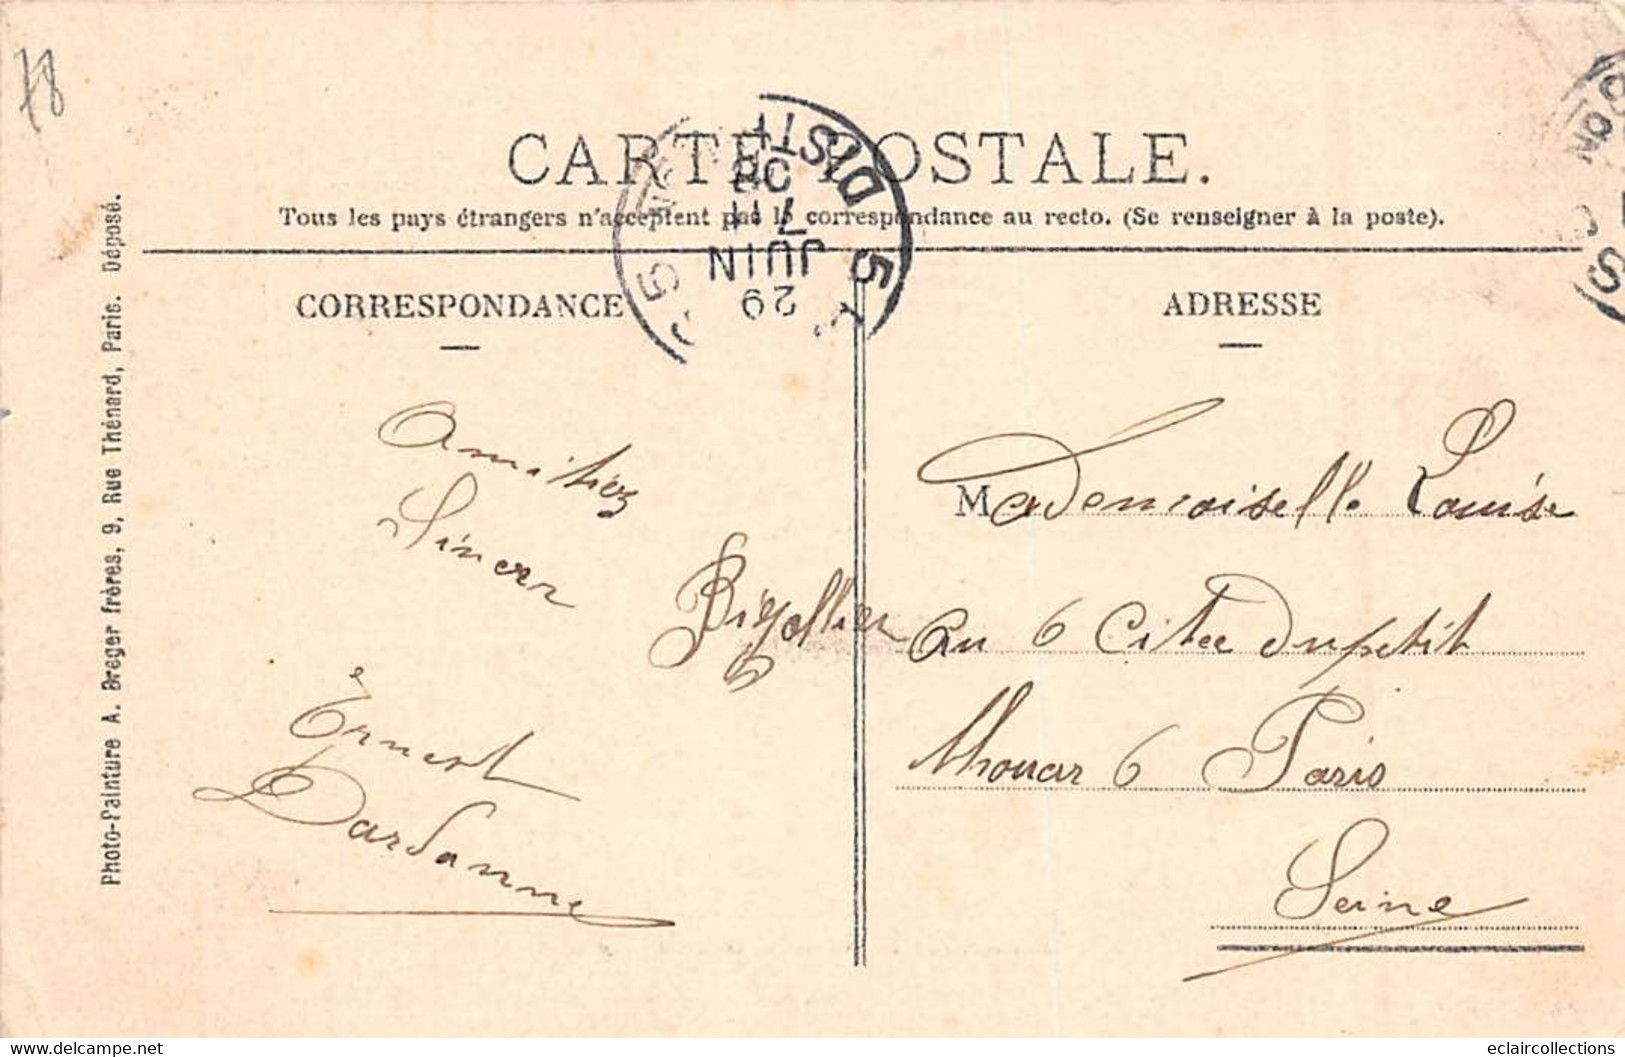 78
CARTE POSTALE.
Tous les pays étrangers n'acceptent pas la correspondance au recto. (Se renseigner à la poste).
CORRESPONDANCE
ADRESSE
DISTN
5
08
7 11
JUIN
29
5
Photo-Peinture A. Breger frères, 9, Rue Thénard, Paris. Déposé.
Amitiez
Sincerr
Ernest
Dardanne
Mademoiselle Louise
Bigollier
au 6 Citee Dupetit
thouar 6 Paris
Seine
https://www.delcampe.net
eclaircollections